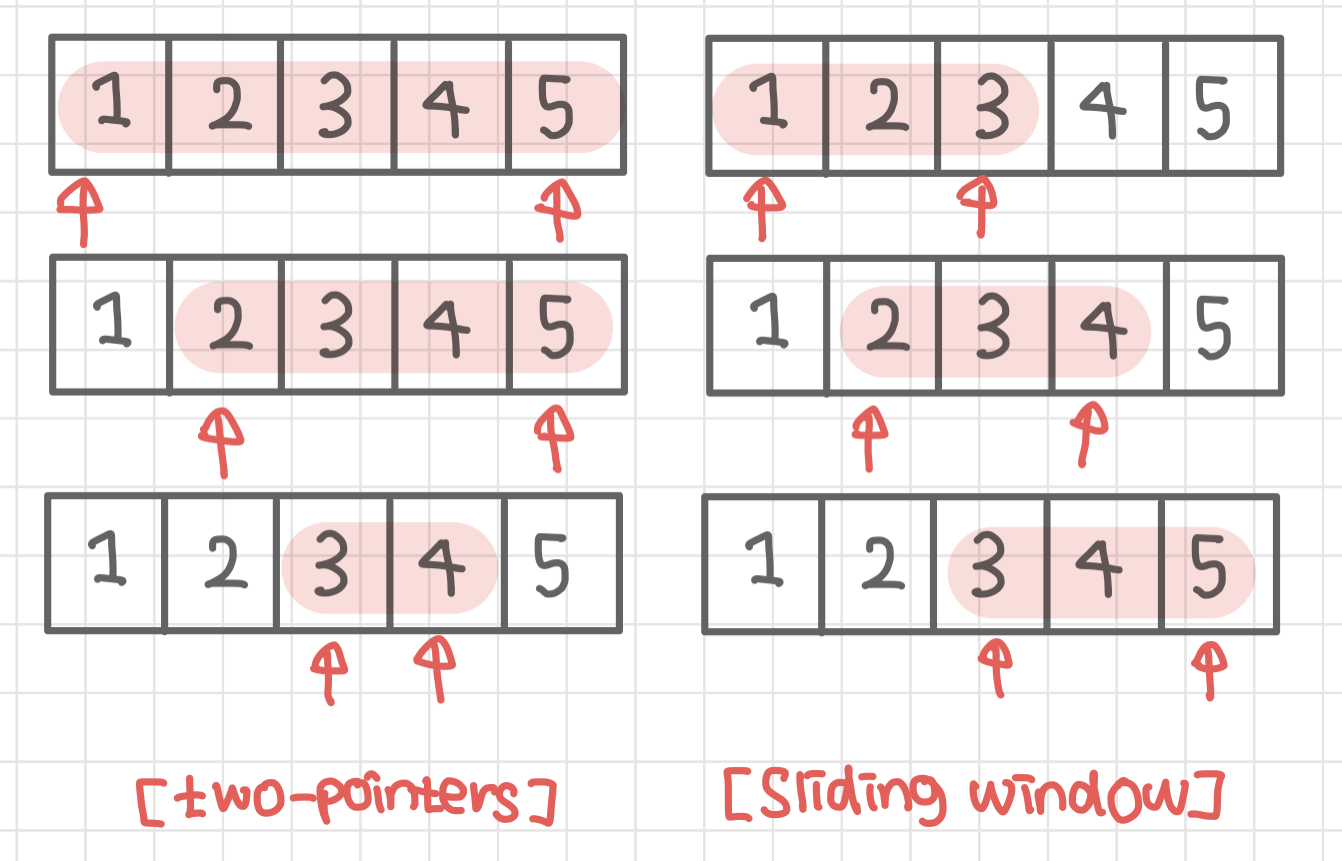 1 2 3 4 5
1 2 3 4 5
1 2 3 4 5
[two-pointers]
1 2 3 4 5
1 2 3 4 5
1 2 3 4 5
[Sliding window]